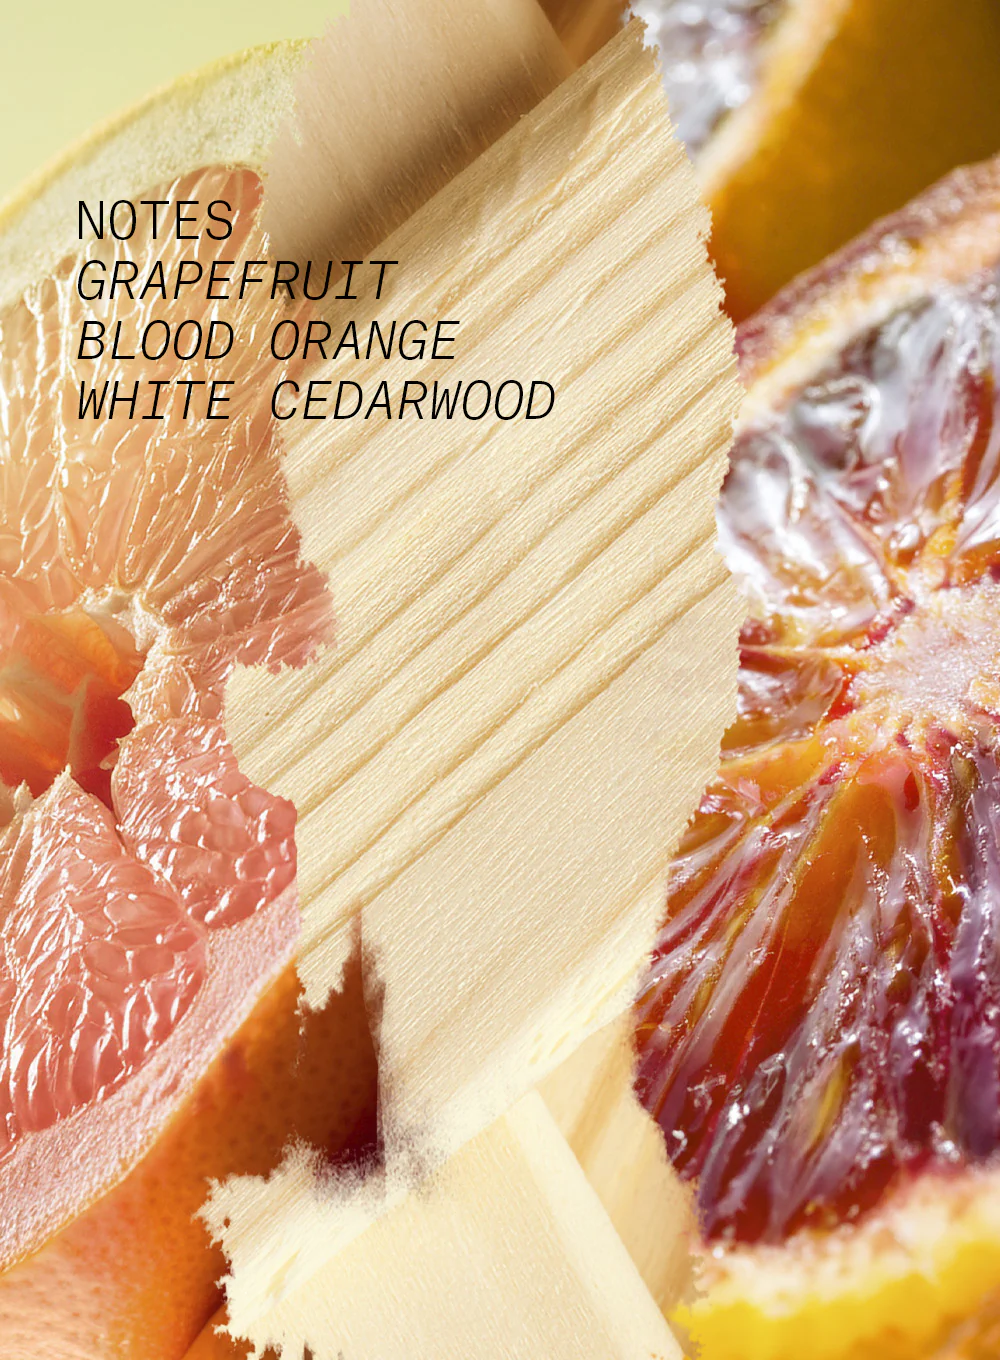 NOTES
GRAPEFRUIT
BLOOD ORANGE
WHITE CEDARWOOD